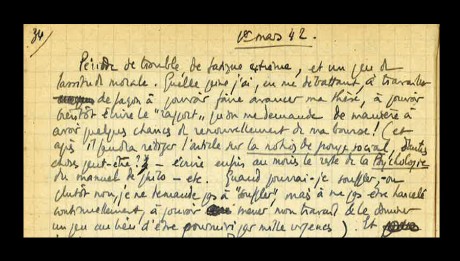 34 1er mars 42.
Période de trouble de fatigue extrême, et un peu de
lassitude morale. Quelle peine j'ai, en me débattant, à travailler
de façon à pouvoir faire avancer ma thèse, à pouvoir
bientôt écrire le "rapport" qu'on me demande de manière à
avoir quelques chances de renouvellement de ma bourse ! (et
après il faudra rédiger l'article sur la notion de groupe social, d'autres
choses peut-être ? - écrire enfin au moins le reste de la Psychologie
du manuel de philo - etc. Quand pourrai-je souffler, - ou
plutôt non, je ne demande pas à "souffler", mais à ne pas être harcelé
continuellement, à pouvoir mener mon travail de le dominer
un peu au lieu d'être poursuivi par mille urgences). Et